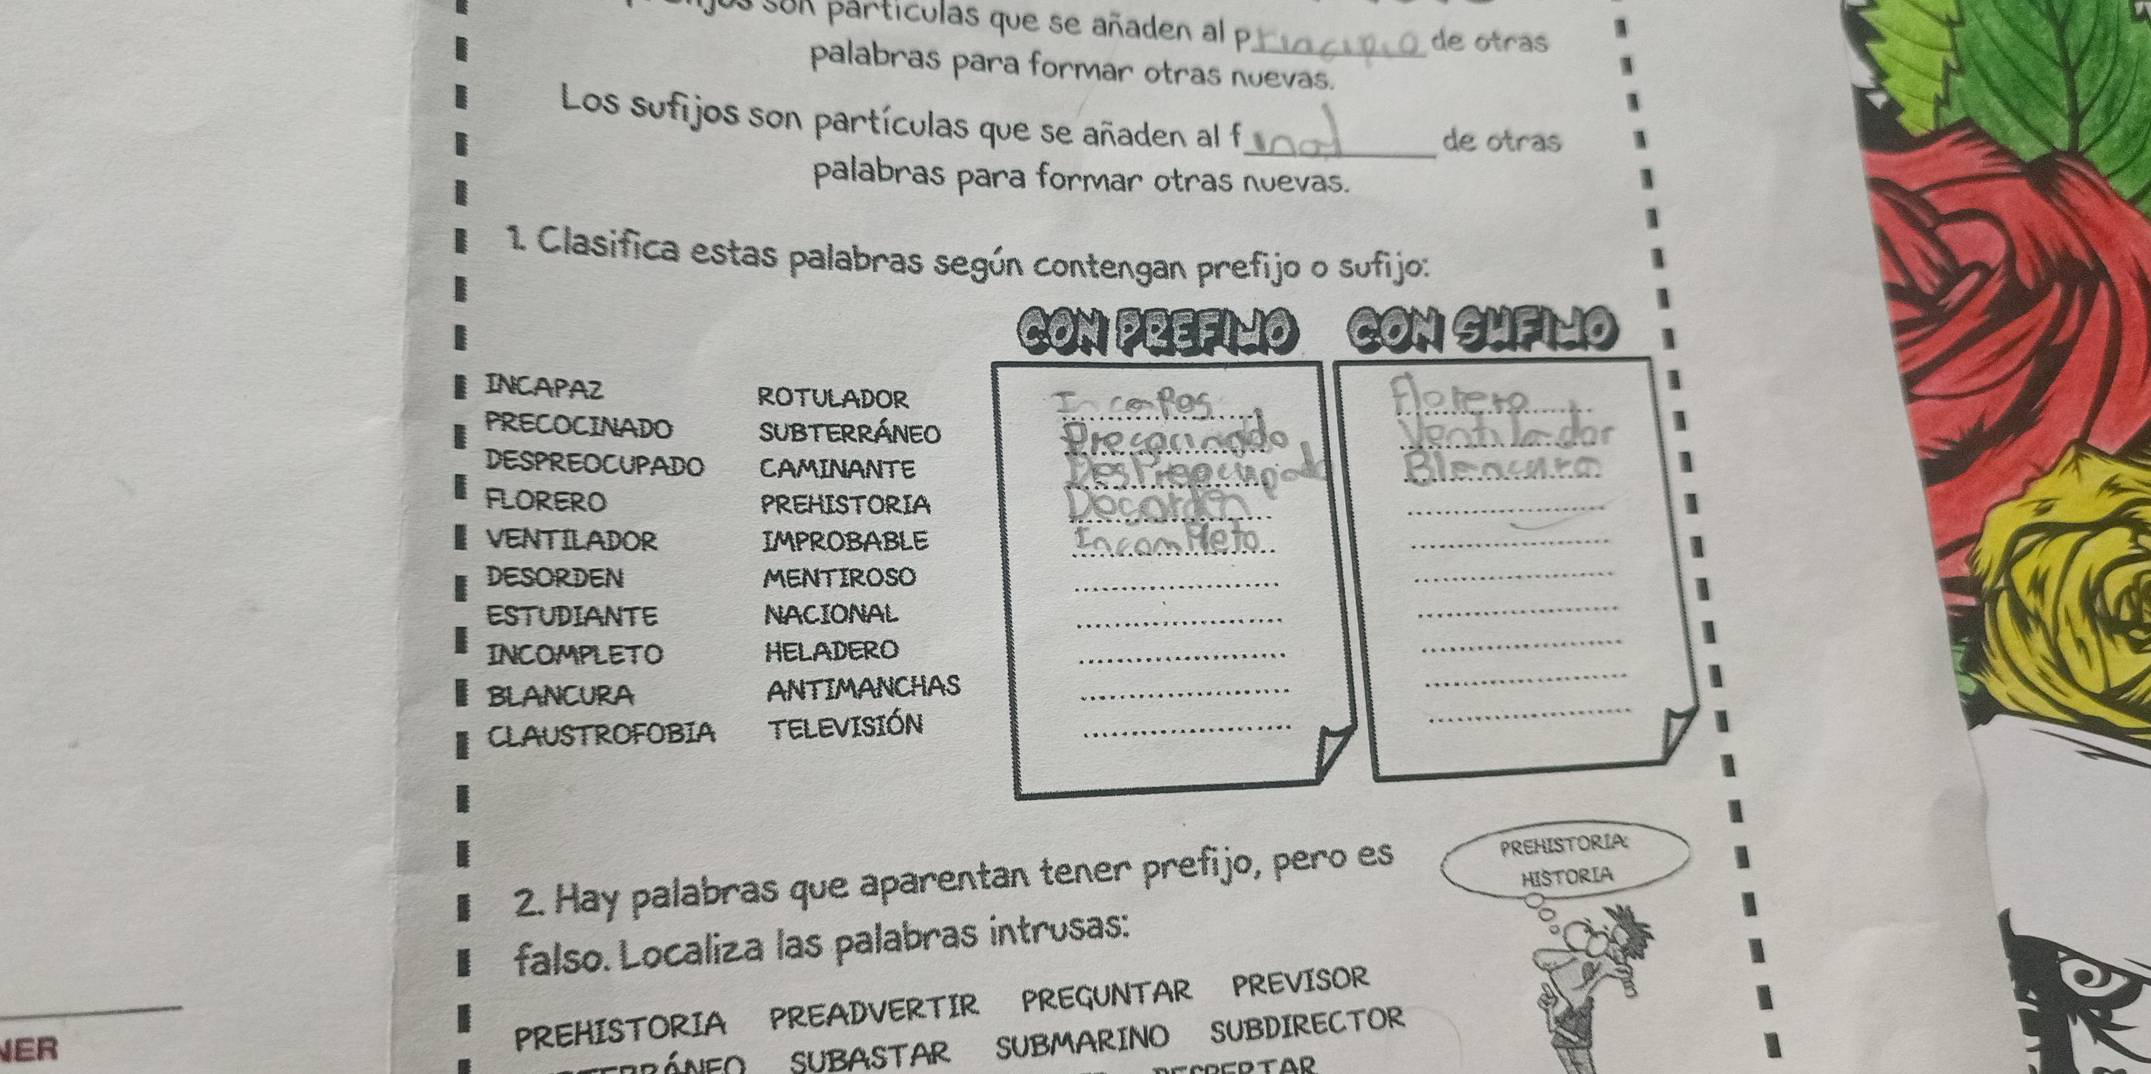 son partículas que se añaden al principio de otras
palabras para formar otras nuevas.
Los sufijos son partículas que se añaden al final de otras
palabras para formar otras nuevas.
1. Clasifica estas palabras según contengan prefijo o sufijo:
CON PREFIJO CON SUFIJO
INCAPAZ ROTULADOR Incapas Florero
PRECOCINADO SUBTERRÁNEO Precocinado Ventilador
DESPREOCUPADO CAMINANTE Despreocupado Blancura
FLORERO PREHISTORIA Decorden
VENTILADOR IMPROBABLE Incompleto
DESORDEN MENTIROSO
ESTUDIANTE NACIONAL
INCOMPLETO HELADERO
BLANCURA ANTIMANCHAS
CLAUSTROFOBIA TELEVISIÓN
2. Hay palabras que aparentan tener prefijo, pero es
falso. Localiza las palabras intrusas:
PREHISTORIA:
HISTORIA
PREHISTORIA PREADVERTIR PREGUNTAR PREVISOR
SUBASTAR SUBMARINO SUBDIRECTOR
NER